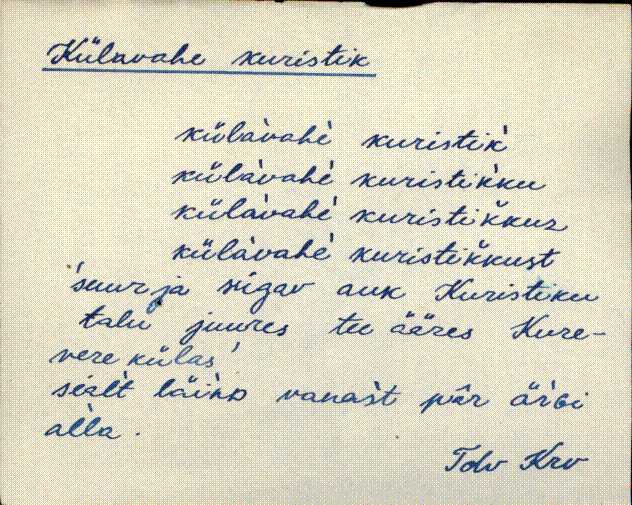 Külavahe kuristik
külàvahè kuristik̀
külàvahè kuristik̀ku
külàvahè kuristik̆kuz
külàvahè kuristik̆kust
'suur ja sügav auk Kuristiku
talu juures tee ääres Kure-
vere külas'
sèàlt läìkə vanast
àlla.
Tolv Krv